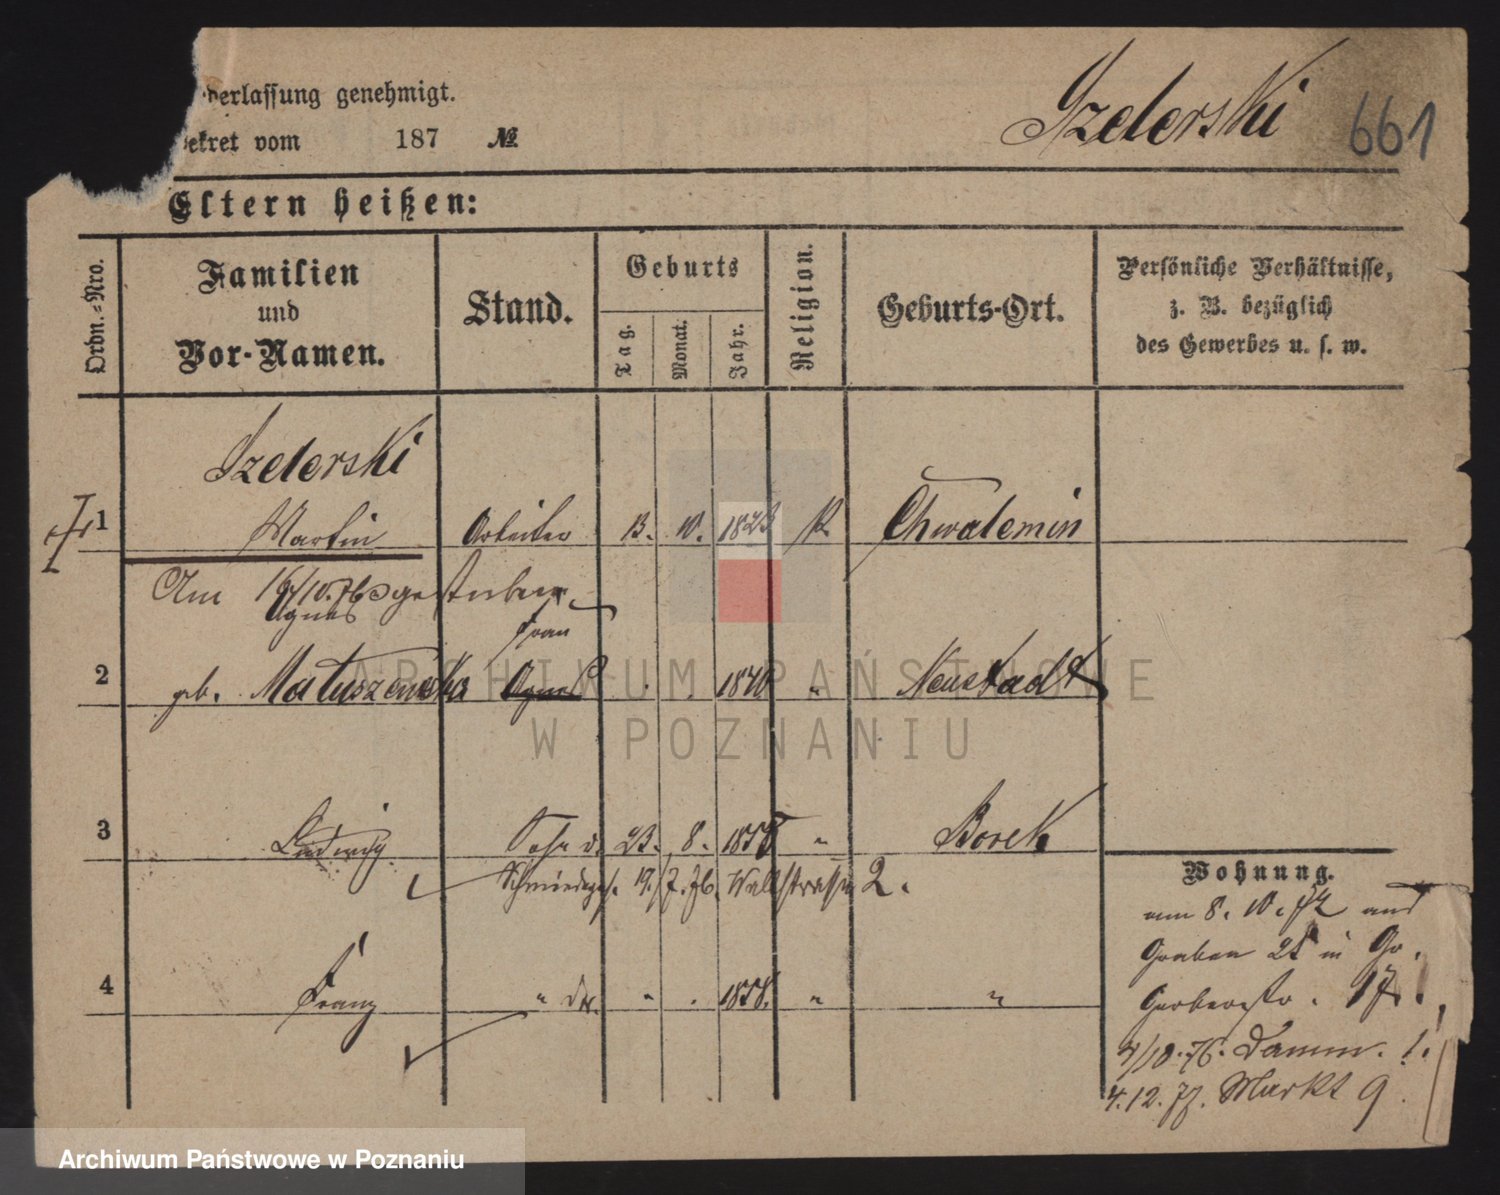 derlassung genehmigt.
ekret vom 187 №
Szederski 661
Eltern heißen:
Ordn.-Nro.
Familien
und
Vor-Namen.
Stand.
Geburts
Tag.
Monat.
Jahr.
Religion.
Geburts-Ort.
Persönliche Verhältnisse,
z. B. bezüglich
des Gewerbes u. s. w.
Szederski
1 Martin Arbeiter 13. 10. 1823 k. Chwalemin
Am 16/10.76 gestorben
Agnes Frau
2 geb. Matuszewska Agnes 1840 " Neustadt
3 Ludwig Sohn d. 23. 8. 1855 " Borek
Schmiedegs. 19./7.76. Wallstrasse 2.
4 Franz " " 1858. " "
Wohnung.
am 8. 10. 72 aus
Graben 25 in Gr.
Gerberstr. 17.
4/10.76. Damm. 1.
4.12.77. Markt 9.
ARCHIWUM PAŃSTWOWE
W POZNANIU
Archiwum Państwowe w Poznaniu